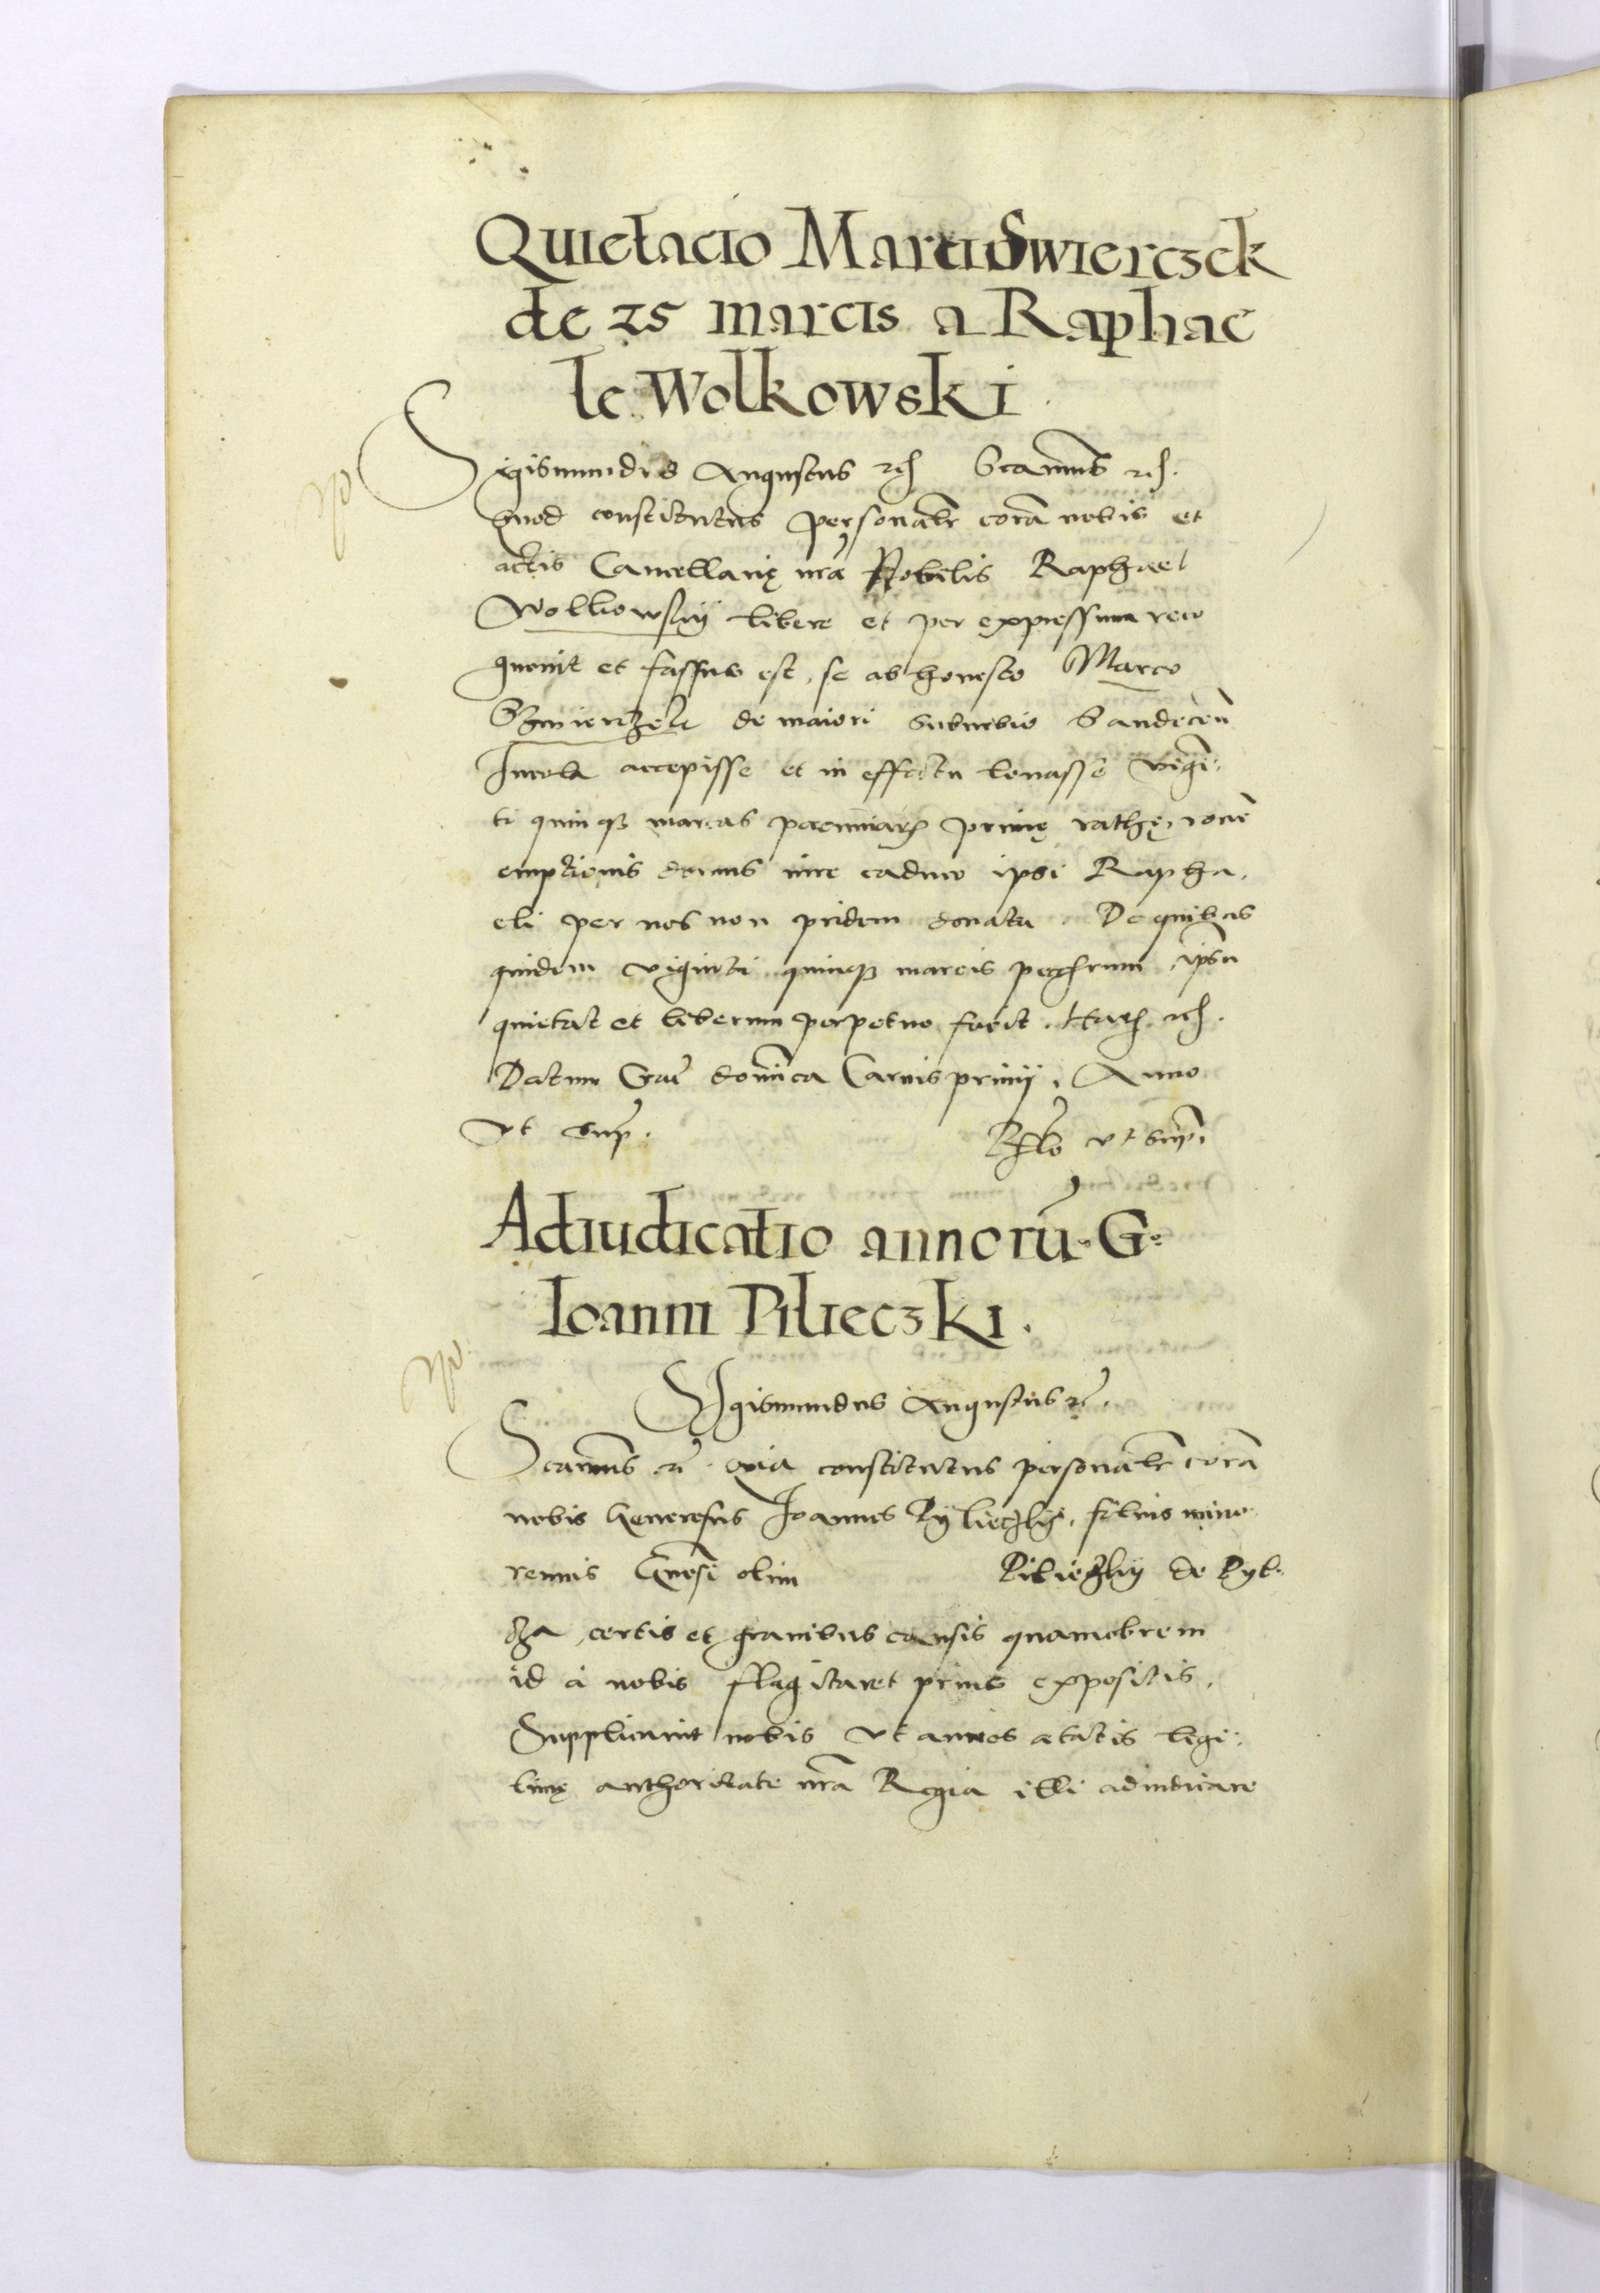 Quietacio Marci Swierczek
de 25 marcis a Raphae
le Wolkowski
Sigismundus Augustus etc̃ Scamus etc̃.
quod constitutus personalr̃ corã nobis et
actis Cancellarię nr̃ae Nobilis Raphael
Wolkowskij libere et per expressum reco
gnouit et fassus est, se ab honesto Marco
de maiori suburbio Sandecen̄
Incola accepisse et in effectu leuasse vigin̄
ti quinqȝ marcas pecuniarȝ primę rathę, ron̄e
emptionis domus iure caduco ipsi Rapha,
eli per nos non pridem donata. De quibus
quidem viginti quinqȝ marcis ipsū
quietat et liberum perpetuo facit. Harȝ etc̃.
Datum Grac̄ domīca Carnispriuij, Anno
vt sup̄.
Rlo vt sup̄.
Adiudicatio annorū G.
Ioanni Pilieczki.
Sigismundus Augustus etc̃.
Scamus etc̃. quia constitutus personalr̃ corã
nobis Generosus Joannes Pylieczkij, filius mino
rennis Gnōsi olim Pilieczkij de Pyl,
cza, certis et grauibus causis quamobrem
id à nobis flagitaret prius expositis,
Supplicauit nobis vt annos aetatis legi,
timę authoritate nr̃a Regia illi adiudicare